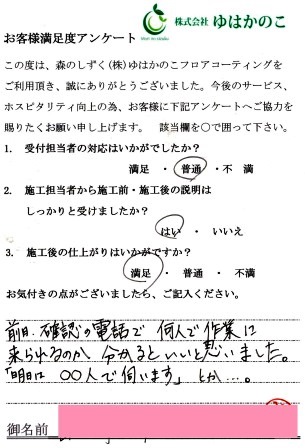 株式会社 ゆはかのこ
お客様満足度アンケート
この度は、森のしずく(株)ゆはかのこフロアコーティングを
ご利用頂き、誠にありがとうございました。今後のサービス、
ホスピタリティ向上の為、お客様に下記アンケートへご協力を
賜りたくお願い申し上げます。 該当欄を○で囲って下さい。
1. 受付担当者の対応はいかがでしたか?
満足 ・ 普通 ・ 不満
2. 施工担当者から施工前・施工後の説明は
しっかりと受けましたか?
はい ・ いいえ
3. 施工後の仕上がりはいかがですか?
満足 ・ 普通 ・ 不満
お気付きの点がございましたら、ご記入ください。
前日、確認の電話で 何人で作業に
来られるのか 分かるといいと思いました。
「明日は ○○人で伺います」とか…。
御名前